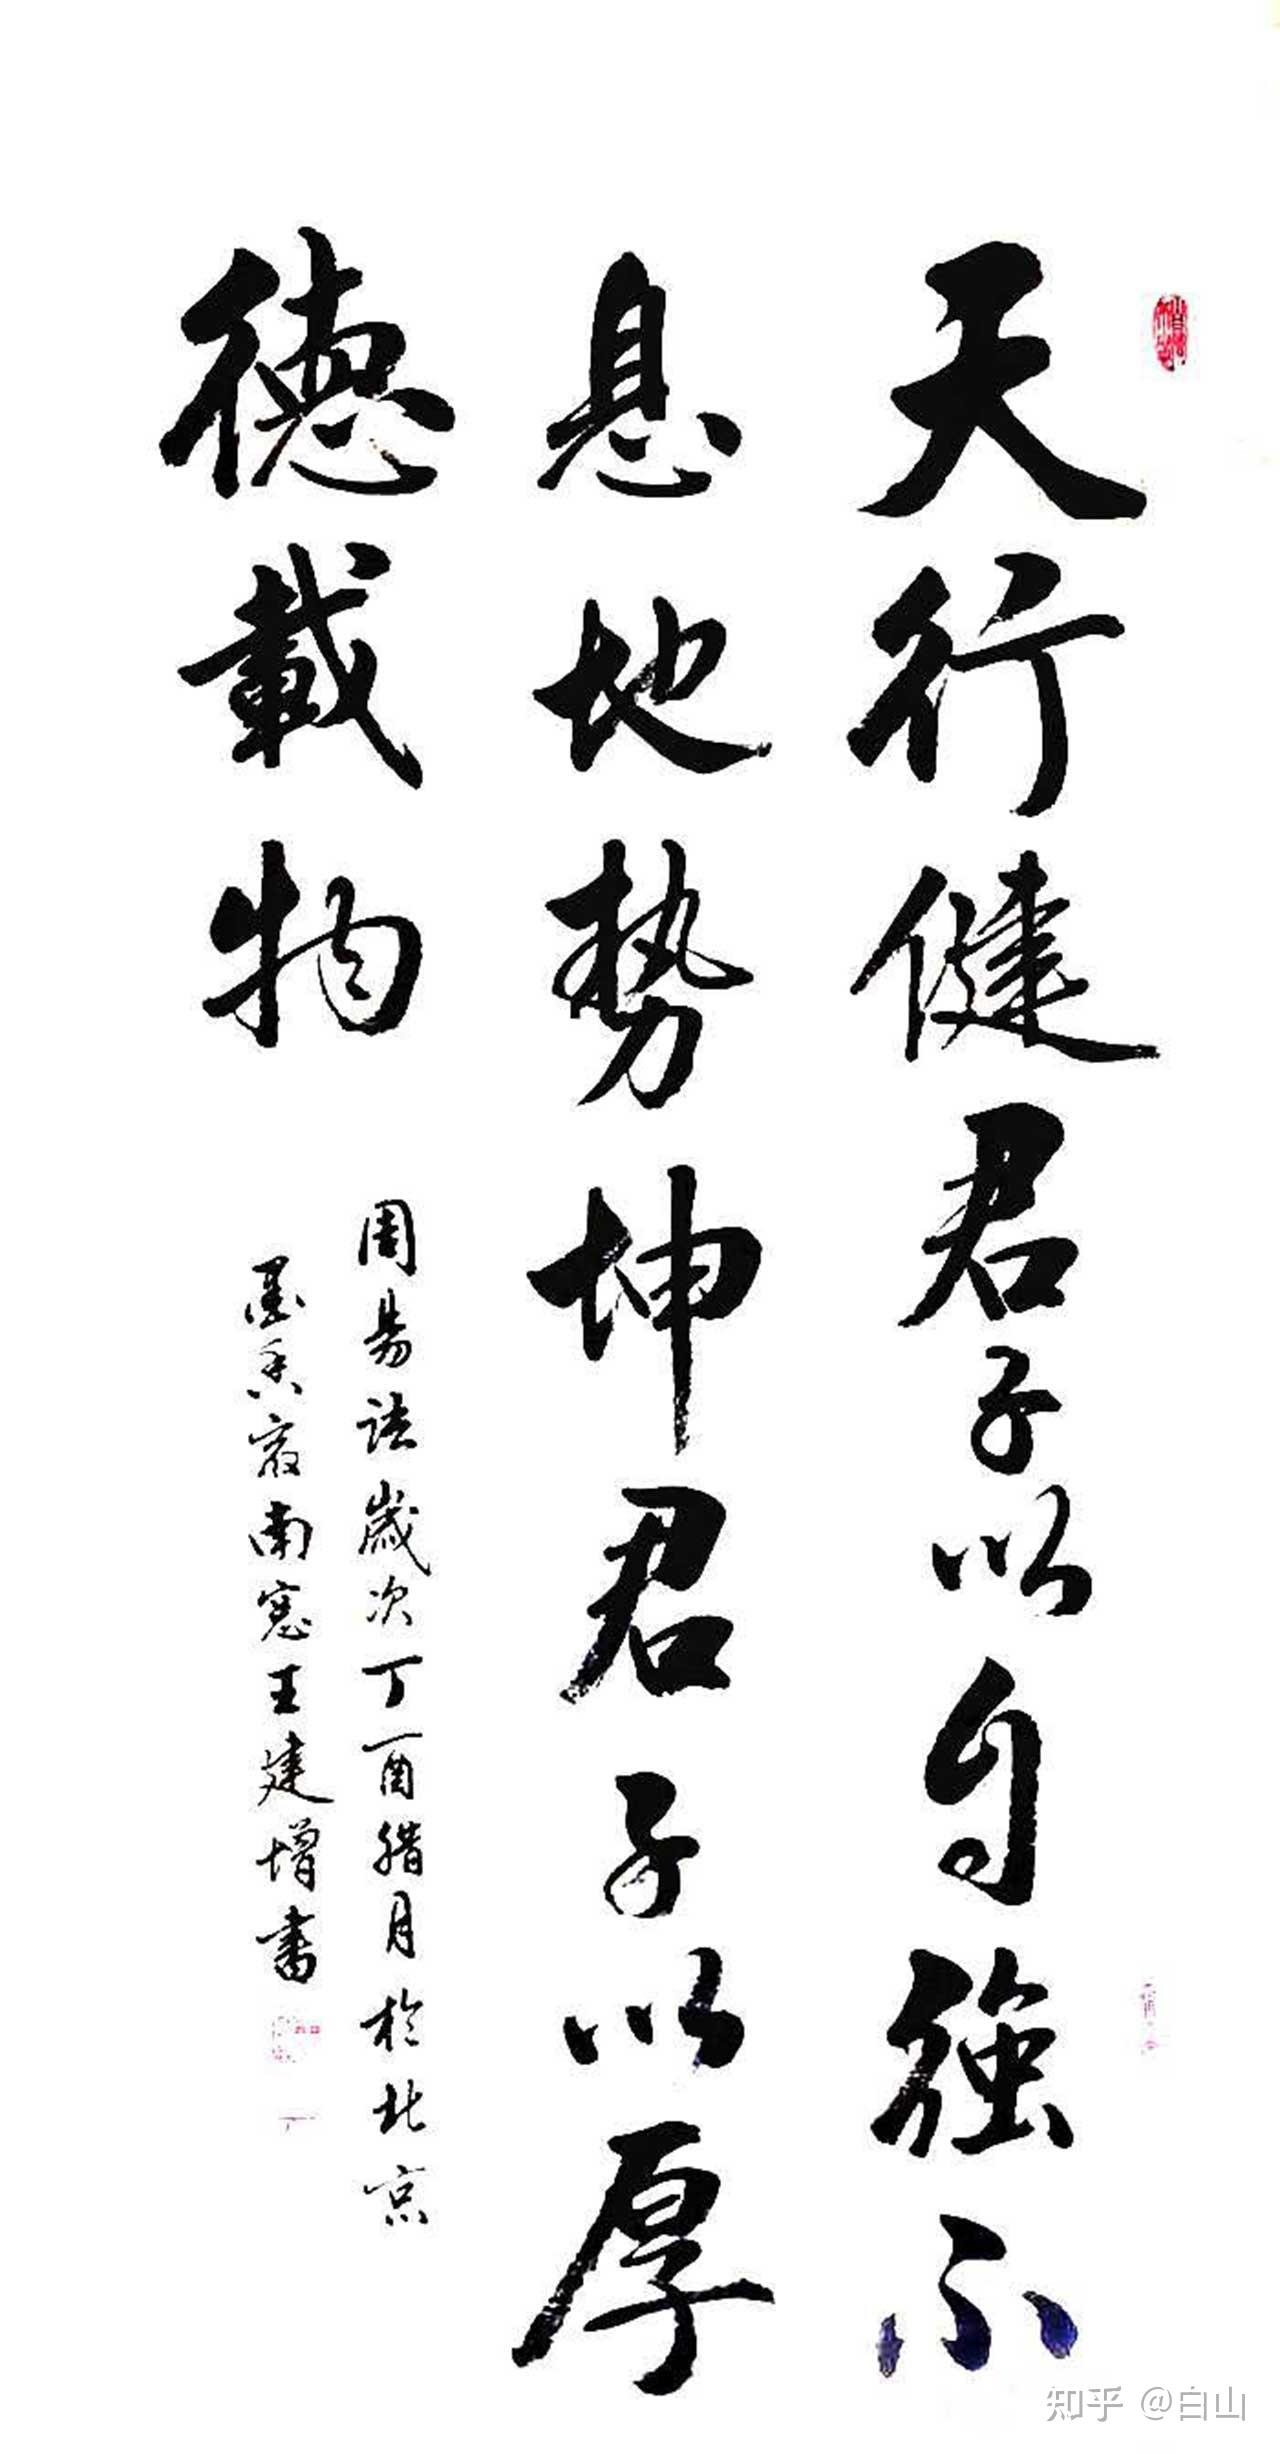 天行健君子以自強不
息地势坤君子以厚
德載物
周易語歲次丁酉腊月於北京
墨香齋南窓王建增書
知乎 @白山